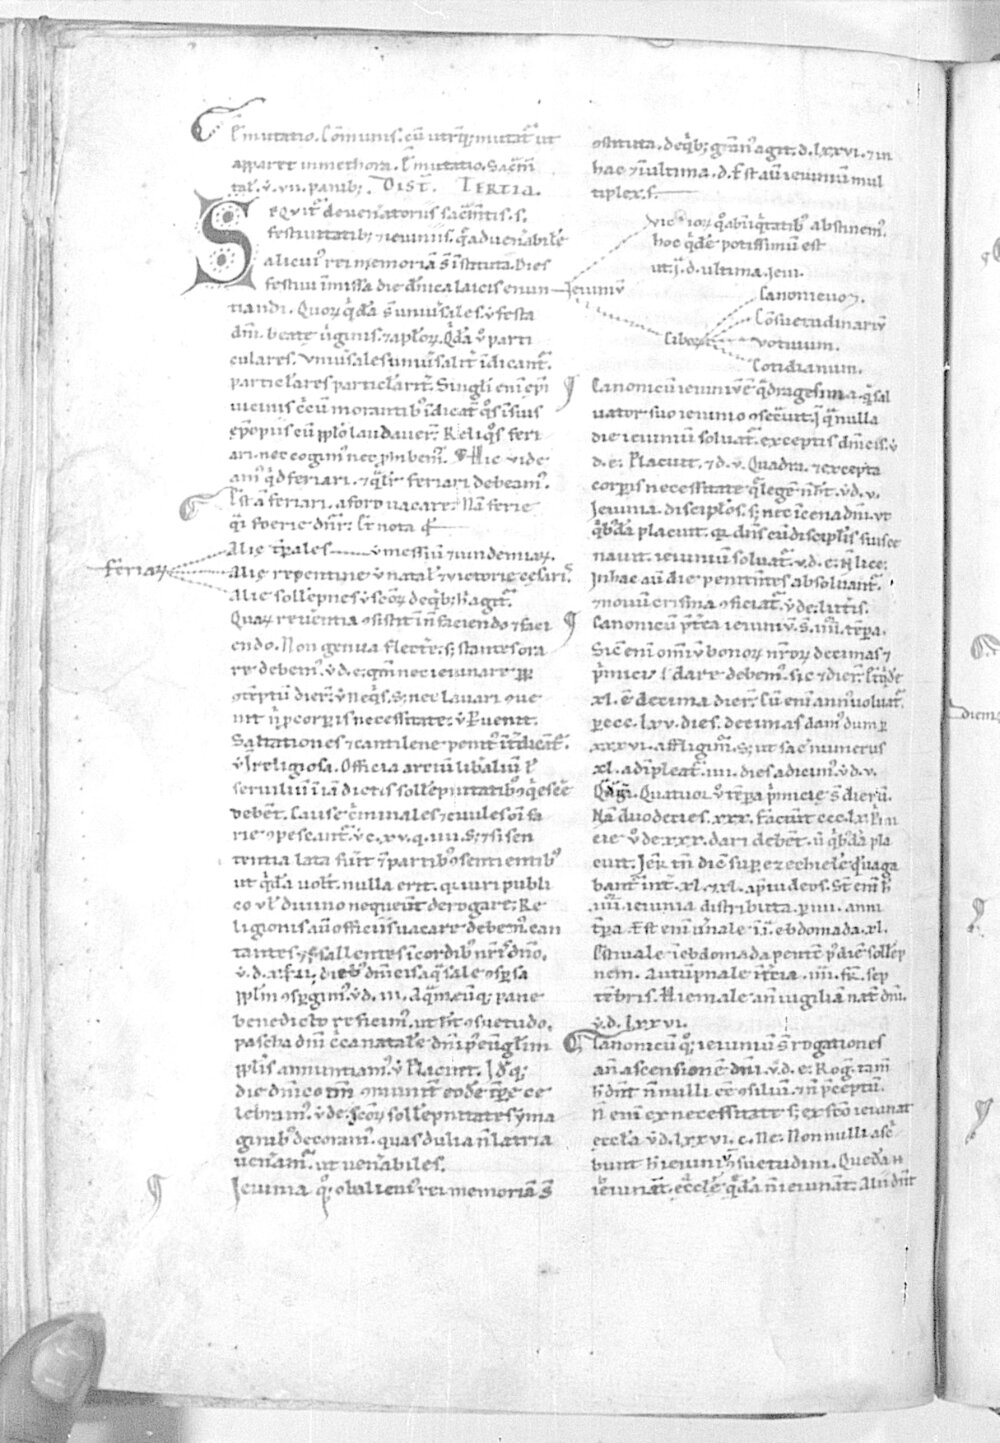 Est mutatio. Cōmunis. cū utrūq; mutat̄ ut
apparet in methora. Est mutatio. Sacm̄
tal̄. v̄. vii. panib;. DIST̄. TERTIA.
Seqvit̄ de venatoriis sac̄m̄tis. s.
festiuitatib; ⁊ ieiuniis. q̄ ad uenabile
alicui' rei memoriā s̄ īstituta. Dies
festiui īmissa die dn̄ica laicis enun
tiandi. Quoꝝ q̄dā s̄ uniūsales. v̄ festa
dn̄i. beate uiginis. ⁊ apl̄oꝝ. Q̄dā v̄ parti
culares. Vniūsales uniūsalit̄ īdicant̄.
particlares particlarit̄. Singli eni ep̄i
uicinis c̄cū morantib' īdicāt q̄s ī suis
ep̄opiis cū pp̄lo laudauer̄. Reliq̄s feri
ari. nec cogim' nec p̄hibem'. Hic vide
am' q̄d feriari. ⁊ q̄lit̄ feriari debeam'.
Est ā feriari. a foro uacare. Nā ferie
q̄i forie dn̄r. Et nota
ferial
Alie tp̄ales v̄ messiū ⁊ uindemiaꝝ.
Alie repentine v̄ natal' ⁊ uictorie cesaris.
Alie sollepnes v̄ scōꝝ de quib; h̄ agit̄.
Quaꝝ reuentia ɔsistit in faciendo ⁊ n̄ faci
endo. Non genua flectere. s; stantes ora
re debem'. v̄. d. e. qm̄ nec ieiunare pp̄
ɔtēptū dier. v̄ neq̄s. s; nec lauari ɔue
nit n̄ p̄ corporis necessitate. v̄ Puenit.
Saltationes ⁊ cantilene penit' īt̄dicāt̄.
v̄ Irreligiosa. Officia artiū lib̄aliū ł
seruiliū iā dictis sollēpnitatib' q̄escere
debent. Cause c̄minales ⁊ ciuiles oī fa
rie ɔpescant̄. v̄. c. xv. q. iiii. S; ⁊ si sen
tentia lata fuīt ī partib' ɔsentientib'
ut q̄dā uolt̄. nulla erit. qi iuri publi
co ul' diuino nequeūt derogare. Re
ligionis au officiis uacare debem'. can
tantes ⁊ psallentes ī cordib' nr̄is dn̄o.
v̄. d. dieb' dn̄icis aq̄ sale ɔspsa
pp̄lm ɔspgim'. v̄. d. iii. Aq̄m eūq; pane
benedicto reficim'. ut h̄t ɔsuetudo.
pascha dn̄i c̄ca natale dn̄i p' euglim
pp̄lis annuntiam'. v̄ Placuit. Idq;
die dn̄ico om̄ ɔmunit̄ eodē tp̄re ce
lebram'. v̄. de. Scōꝝ sollepnitates yma
ginib' decoram'. quas dulia n̄ latria
uenam̄. ut uenabiles.
Ieiunia q̄q; ob alicui' rei memoriā s̄
ɔstituta. de q̄b; gran' agit. d. lxxvi. ⁊ in
hac ⁊ ī ultima. d. Est au ieiuniū mul
tiplex. s.
Ieiuniū
Vicioꝝ q̄ ab iniq̄tatib' abstinem'.
hoc q̄de potissimū est
ut. j. d. ultima. ieiu.
Ciboꝝ
Canonicuoꝝ.
Cōsuetudinariū
votiuum.
Cotidianum.
Canonicū ieiuniū ē q̄dragesima. q̄ sal
uator suo ieiunio ɔsecuit. ī q̄ nulla
die ieiuniū soluat̄. exceptis dn̄icis. v̄.
d. e. Placuit. ⁊ d. v. Quadra. ⁊ excepta
corporis necessitate q̄ legē n̄ h̄t. v̄. d. v.
Ieiunia. discipl'os. s; nec ī cena dn̄i. ut
q̄b'dā placuit. qr dn̄s cū discipl'is suis ce
nauit. ieiuniū soluat̄. v̄. d. e. N̄ licet.
In hac au die penitentes absoluant̄.
⁊ nouū crisma ɔficiat̄. v̄. de. Litt̄is.
Canonicū p̄t̄ea ieiuniū s̄. iiii. tēpora.
Sic enī omniū bonoꝝ nr̄oꝝ decimas ⁊
p̄micias dare debem'. sic ⁊ dier̄.
xl. ē decima dier̄. Cū enī ann' uoluat̄
p ccc. lxv. dies. decimas dam' dum p
xxxvi. affligim'. S; ut sac̄ numerus
xl. adīpleat̄. iiii. dies adicim'. v̄. d. v.
Qdragi. Quatuor v̄ tēpora p̄micie s̄ dierū.
Nā duodecies. xxx. faciūt ccc. lx. P̄mi
cie v̄ de xxx. dari debent. ū q̄b'dā pla
cuit. Ier. tn̄ dic̄ super ezechielē q̄ uaga
bant̄ int̄. xl. ⁊ xl. ap iudeos. St̄ enī h̄
iiii. ieiunia distributa. p iiii. anni
tēpora. Est enī uernale ī. i. ebdomada. xl.
Estiuale ī ebdomada pentē p' diē sollēp
nem. Autūpnale ī t̄cia. iiii. fr̄. sep
tēbris. Hiemale an̄ uigiliā nat̄ dn̄i.
v̄. d. lxxvi.
Canonicū q̄q; ieiuniū s̄ rogationes
an̄ ascensionē dn̄i. v̄. d. e. Rog. tam̄
h̄ dn̄t n̄nulli ee ɔsiliū. ⁊ n̄ p̄ceptū.
N̄ enī ex necessitate s; ex scōm ieiunat
eccl'a v̄. d. lxxvi. c. Ne. Nonnulli asc'
bunt h̄ ieiuniū ɔsuetudini. Quedā n̄
ieiuniat̄. eccl'e q̄dā n̄ ieiunat̄. Alii dn̄t